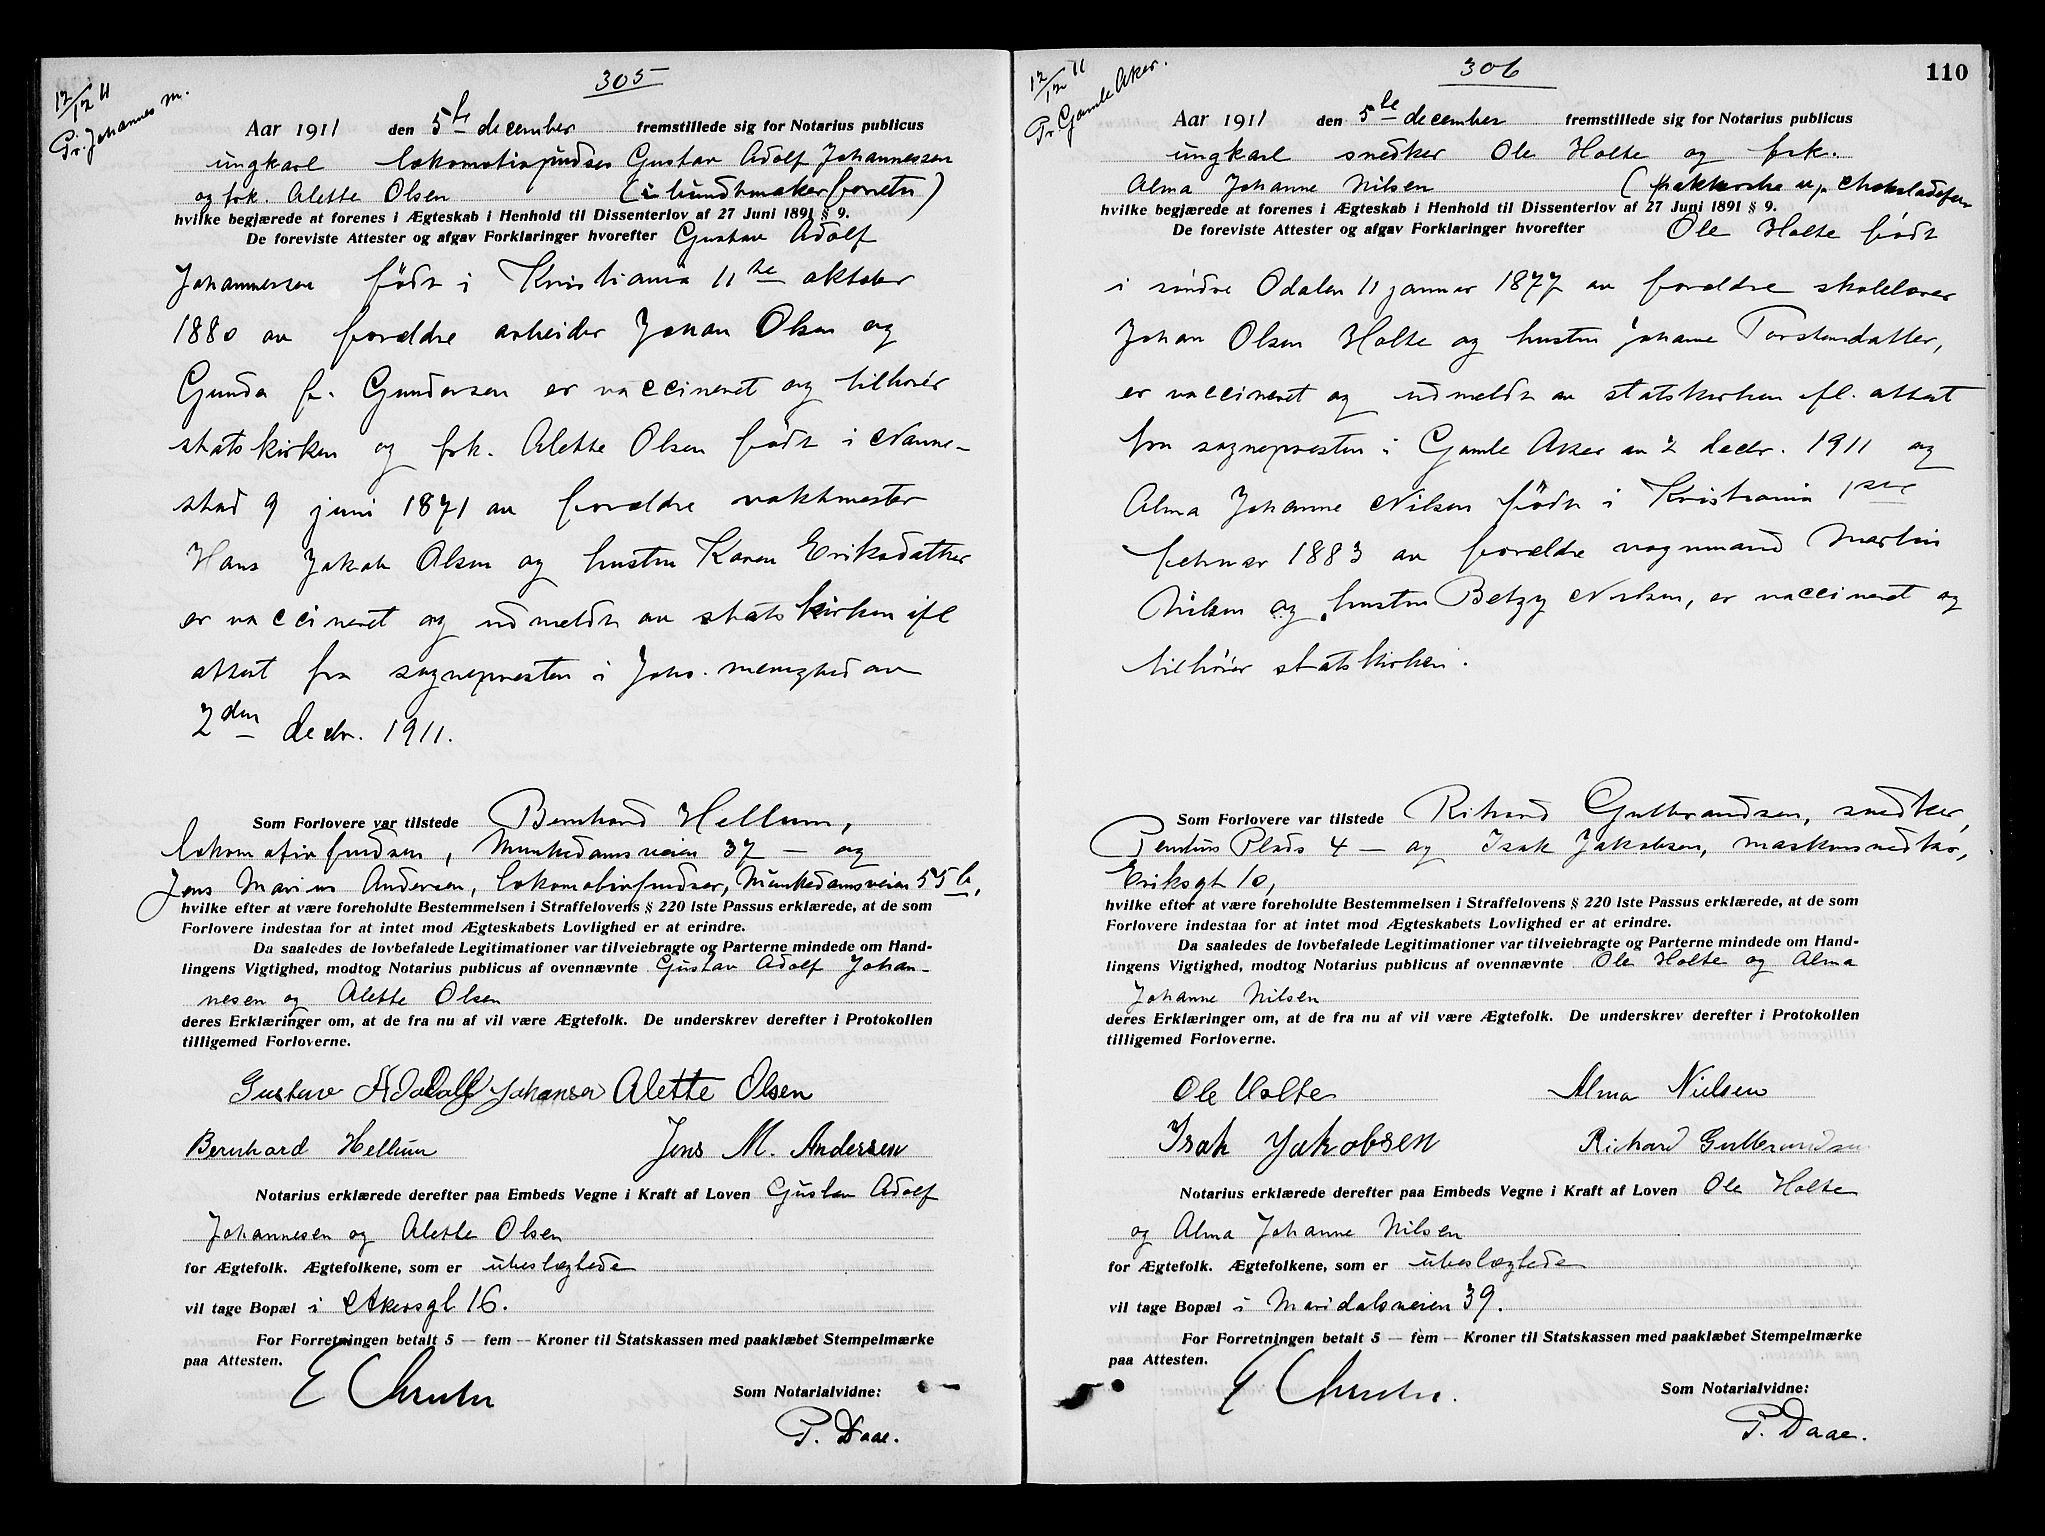 12/12 11
Pr. Johannes m.
305
Aar 1911 den 5te december fremstillede sig for Notarius publicus
ungkarl lokomotivpudser Gustav Adolf Johannessen
og frk. Alette Olsen (i bundtmakerforretn)
hvilke begjærede at forenes i Ægteskab i Henhold til Dissenterlov af 27 Juni 1891 § 9.
De foreviste Attester og afgav Forklaringer hvorefter Gustav Adolf
Johannessen født i Kristiania 11te oktober
1880 av forældre arbeider Johan Olsen og
Gunda f. Gundersen er vaccineret og tilhører
statskirken og frk. Alette Olsen født i Nanne-
stad 9 juni 1871 av forældre vaktmester
Hans Jakob Olsen og hustru Karen Eriksdatter
er vaccineret og udmeldt av statskirken ifl
attest fra sognepresten i Johs. menighed av
2den decbr. 1911.
Som Forlovere var tilstede Bernhard Hellum,
lokomotivpudser, Munkedamsveien 37 — og
Jens Marius Andersen, lokomotivpudser, Munkedamsveien 55b,
hvilke efter at være foreholdte Bestemmelsen i Straffelovens § 220 1ste Passus erklærede, at de som
Forlovere indestaa for at intet mod Ægteskabets Lovlighed er at erindre.
Da saaledes de lovbefalede Legitimationer var tilveiebragte og Parterne mindede om Hand-
lingens Vigtighed, modtog Notarius publicus af ovennævnte Gustav Adolf Johan-
nesen og Alette Olsen
deres Erklæringer om, at de fra nu af vil være Ægtefolk. De underskrev derefter i Protokollen
tilligemed Forloverne.
Gustav Adolf Johansen Alette Olsen
Bernhard Hellum Jens M. Andersen
Notarius erklærede derefter paa Embeds Vegne i Kraft af Loven Gustav Adolf
Johannesen og Alette Olsen
for Ægtefolk. Ægtefolkene, som er ubeslægtede
vil tage Bopæl i Akersgt 16.
For Forretningen betalt 5 — fem — Kroner til Statskassen med paaklæbet Stempelmærke
paa Attesten.
Som Notarialvidne:
P. Daae.
12/12 11
Pr. Gamle Aker.
306
110
Aar 1911 den 5te december fremstillede sig for Notarius publicus
ungkarl snedker Ole Holte og frk.
Alma Johanne Nilsen
hvilke begjærede at forenes i Ægteskab i Henhold til Dissenterlov af 27 Juni 1891 § 9.
De foreviste Attester og afgav Forklaringer hvorefter Ole Holte født
i søndre Odalen 11 januar 1877 av forældre skolelærer
Johan Olsen Holte og hustru Johanne Torstensdatter,
er vaccineret og udmeldt av statskirken ifl. attest
fra sognepresten i Gamle Aker av 2 decbr. 1911 og
Alma Johanne Nilsen født i Kristiania 1ste
februar 1883 av forældre vognmand Martin
Nilsen og hustru Betzy Nilsen, er vaccineret og
tilhører statskirken.
Som Forlovere var tilstede Rikard Gulbrandsen, snedker,
Plads 4 — og Isak Jakobsen, maskinsnedker,
Eriksgt 10,
hvilke efter at være foreholdte Bestemmelsen i Straffelovens § 220 1ste Passus erklærede, at de som
Forlovere indestaa for at intet mod Ægteskabets Lovlighed er at erindre.
Da saaledes de lovbefalede Legitimationer var tilveiebragte og Parterne mindede om Hand-
lingens Vigtighed, modtog Notarius publicus af ovennævnte Ole Holte og Alma
Johanne Nilsen
deres Erklæringer om, at de fra nu af vil være Ægtefolk. De underskrev derefter i Protokollen
tilligemed Forloverne.
Ole Holte Alma Nielsen
Isak Jakobsen Richard Gulbrandsen
Notarius erklærede derefter paa Embeds Vegne i Kraft af Loven Ole Holte
og Alma Johanne Nilsen
for Ægtefolk. Ægtefolkene, som er ubeslægtede
vil tage Bopæl i Maridalsveien 39.
For Forretningen betalt 5 — fem — Kroner til Statskassen med paaklæbet Stempelmærke
paa Attesten.
Som Notarialvidne:
P. Daae.